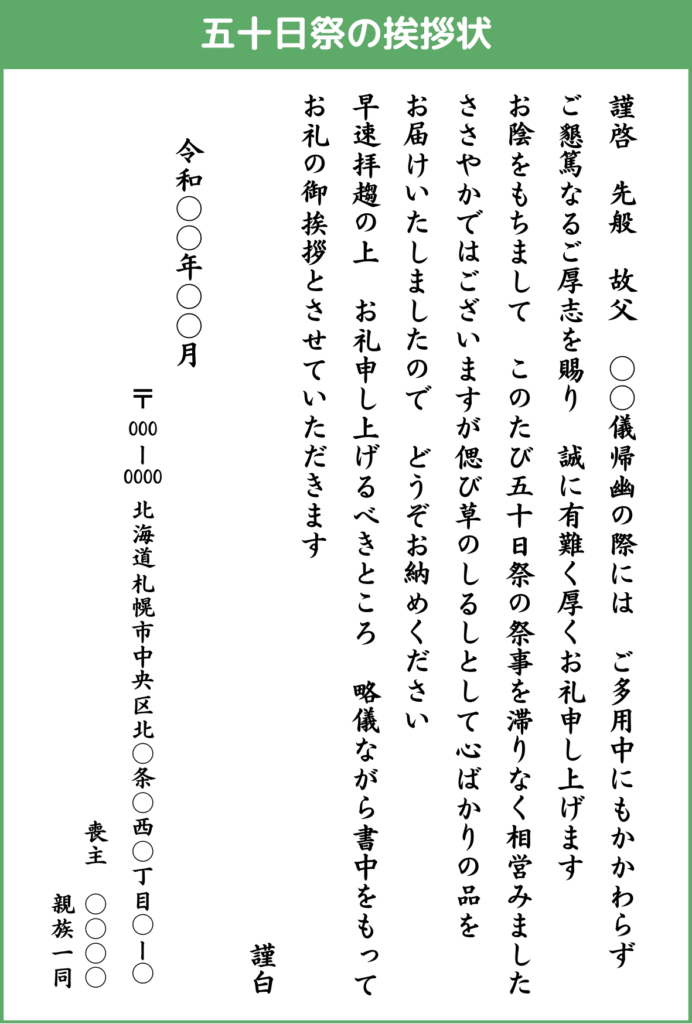 五十日祭の挨拶状
謹啓　先般　故父　〇〇儀帰幽の際には　ご多用中にもかかわらず
ご懇篤なるご厚志を賜り　誠に有難く厚くお礼申し上げます
お陰をもちまして　このたび五十日祭の祭事を滞りなく相営みました
ささやかではございますが偲び草のしるしとして心ばかりの品を
お届けいたしましたので　どうぞお納めください
早速拝趨の上　お礼申し上げるべきところ　略儀ながら書中をもって
お礼の御挨拶とさせていただきます
謹白
令和〇〇年〇〇月
〒000ー0000 北海道札幌市中央区北〇条〇西〇丁目〇ー〇
喪主　〇〇〇〇
親族一同